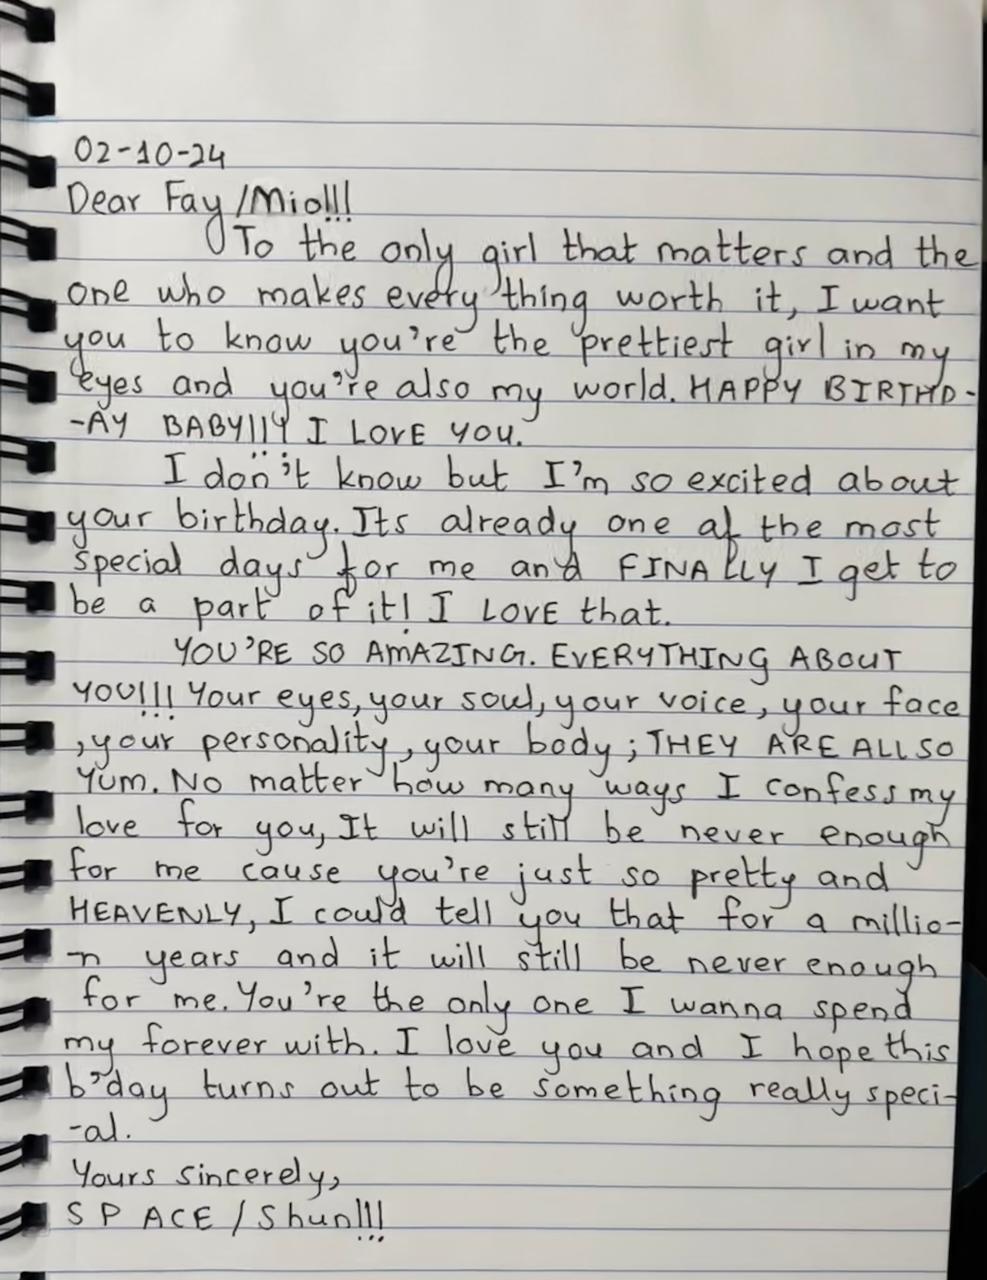 02-10-24
Dear Fay/Mio!!!
To the only girl that matters and the
one who makes every thing worth it, I want
you to know you're the prettiest girl in my
eyes and you're also my world. HAPPY BIRTHD-
-AY BABY!!! I LOVE YOU.
I don't know but I'm so excited about
your birthday. Its already one of the most
special days for me and FINALLY I get to
be a part of it! I LOVE that.
YOU'RE SO AMAZING. EVERYTHING ABOUT
YOU!!! Your eyes, your soul, your voice, your face
, your personality, your body ; THEY ARE ALL SO
YUM. No matter how many ways I confess my
love for you, It will still be never enough
for me cause you're just so pretty and
HEAVENLY, I could tell you that for a millio-
-n years and it will still be never enough
for me. You're the only one I wanna spend
my forever with. I love you and I hope this
b'day turns out to be something really speci-
-al.
Yours sincerely,
SPACE/Shun!!!